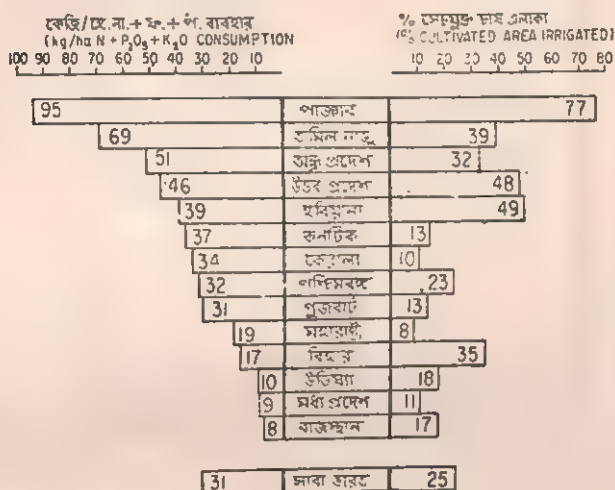 কেজি/হে.না.+ ফ.+ প. ব্যবহার
(kg/ha N + P₂O₅ + K₂O CONSUMPTION
% সেচযুক্ত চাষ এলাকা
(% CULTIVATED AREA IRRIGATED)
100 90 80 70 60 50 40 30 20 10
10 20 30 40 50 60 70 80
95 পাঞ্জাব 77
69 তামিল নাড়ু 39
51 অন্ধ্র প্রদেশ 32
46 উত্তর প্রদেশ 48
39 হরিয়ানা 49
37 কর্নাটক 13
34 কেরালা 10
32 পশ্চিমবঙ্গ 23
31 গুজরাট 13
19 মহারাষ্ট্র 8
17 বিহার 35
10 উড়িষ্যা 18
9 মধ্য প্রদেশ 11
8 রাজস্থান 17
31 সারা ভারত 25